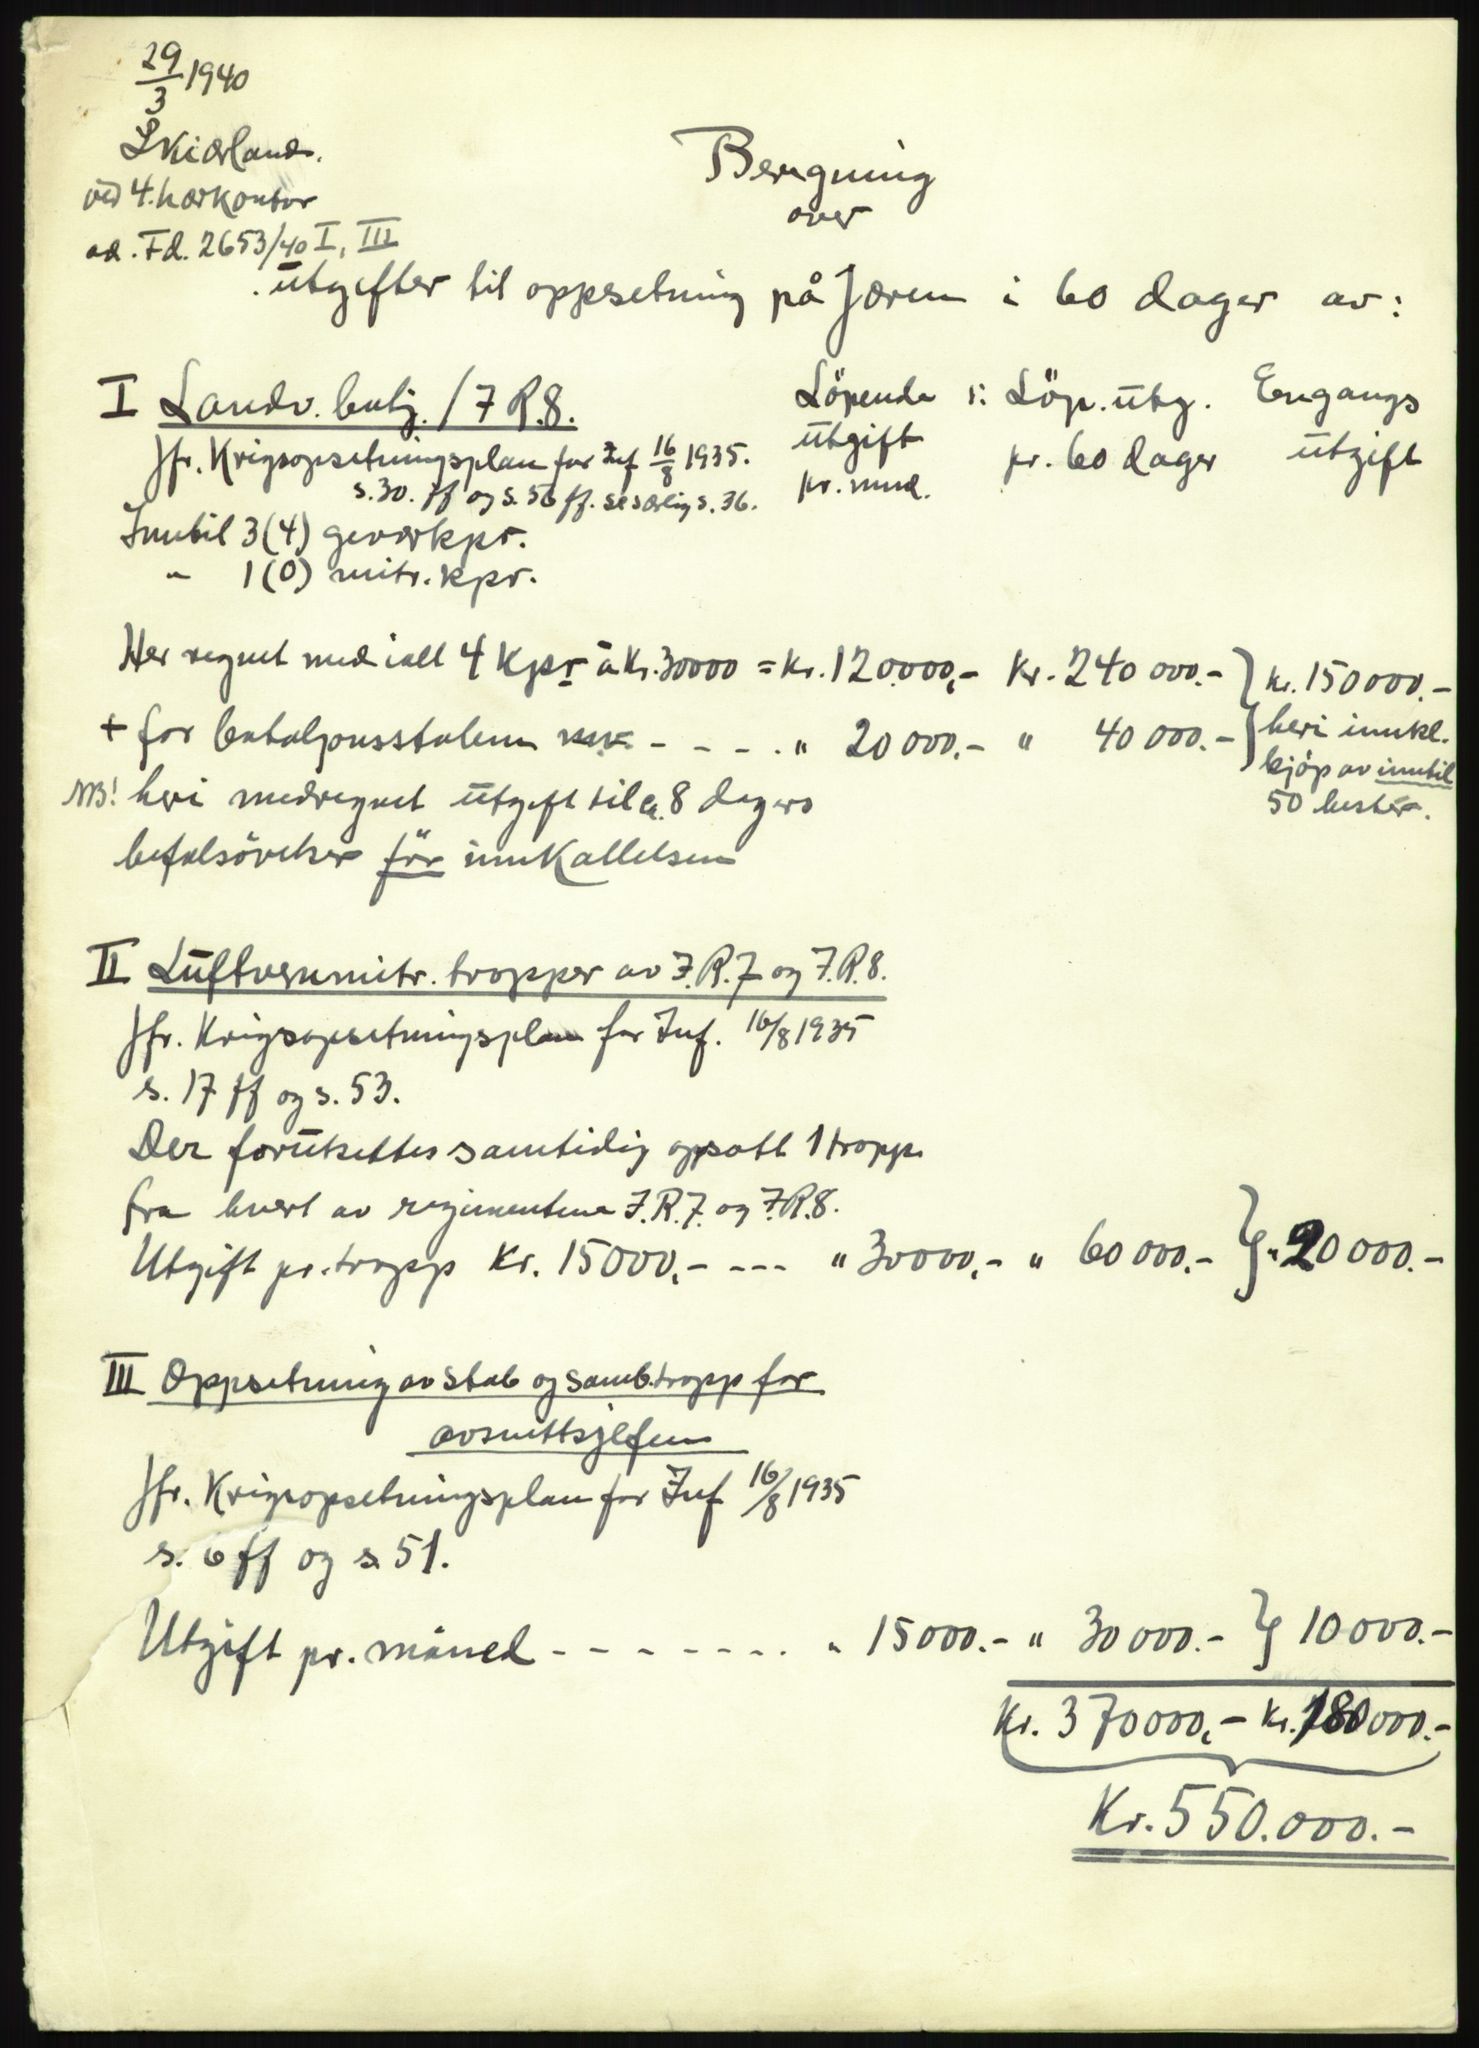 29/3 1940
Skiærland.
ved 4. hærkontor
ad. Fd. 2653/40 I, III
Beregning
over
utgifter til oppsetning på Jæren i 60 dager av:
I Landv. batj. / I R. 8.
Löpende utgift pr. mnd.
Löp. utg. pr. 60 dager
Engangs utgift
Jfr. Krigsopsetningsplan for Inf 16/8 1935.
s. 30. ff og s. 56 ff. se særlig s. 36.
Inntil 3 (4) geværkpr.
" 1 (0) mitr. kpr.
Her regnet med ialt 4 kpr à kr. 30000 = kr. 120.000,- kr. 240 000.- } kr. 150000.-
+ for bataljonsstaben - - - - " 20 000.- " 40 000.- } heri innkl.
kjöp av inntil
50 hester.
NB! heri medregnet utgift til ca. 8 dagers
befalsövelser för innkallelsen
II Luftvernmitr. tropper av I.R. 7 og I.R. 8.
Jfr. Krigsopsetningsplan for Inf. 16/8 1935
s. 17 ff og s. 53.
Der forutsettes samtidig opsatt 1 tropp
fra hvert av regimentene I.R. 7. og I.R. 8.
Utgift pr. tropp kr. 15000,- --- " 30000,- " 60 000.- } " 20 000.-
III Oppsetning av stab og samb. tropp for
avsnittsjefen
Jfr. Krigsopsetningsplan for Inf 16/8 1935
s. 6 ff og s. 51.
Utgift pr. måned - - - - - - - . " 15000.- " 30 000.- } 10 000.-
Kr. 370000,- kr. 180 000.-
Kr. 550.000.-